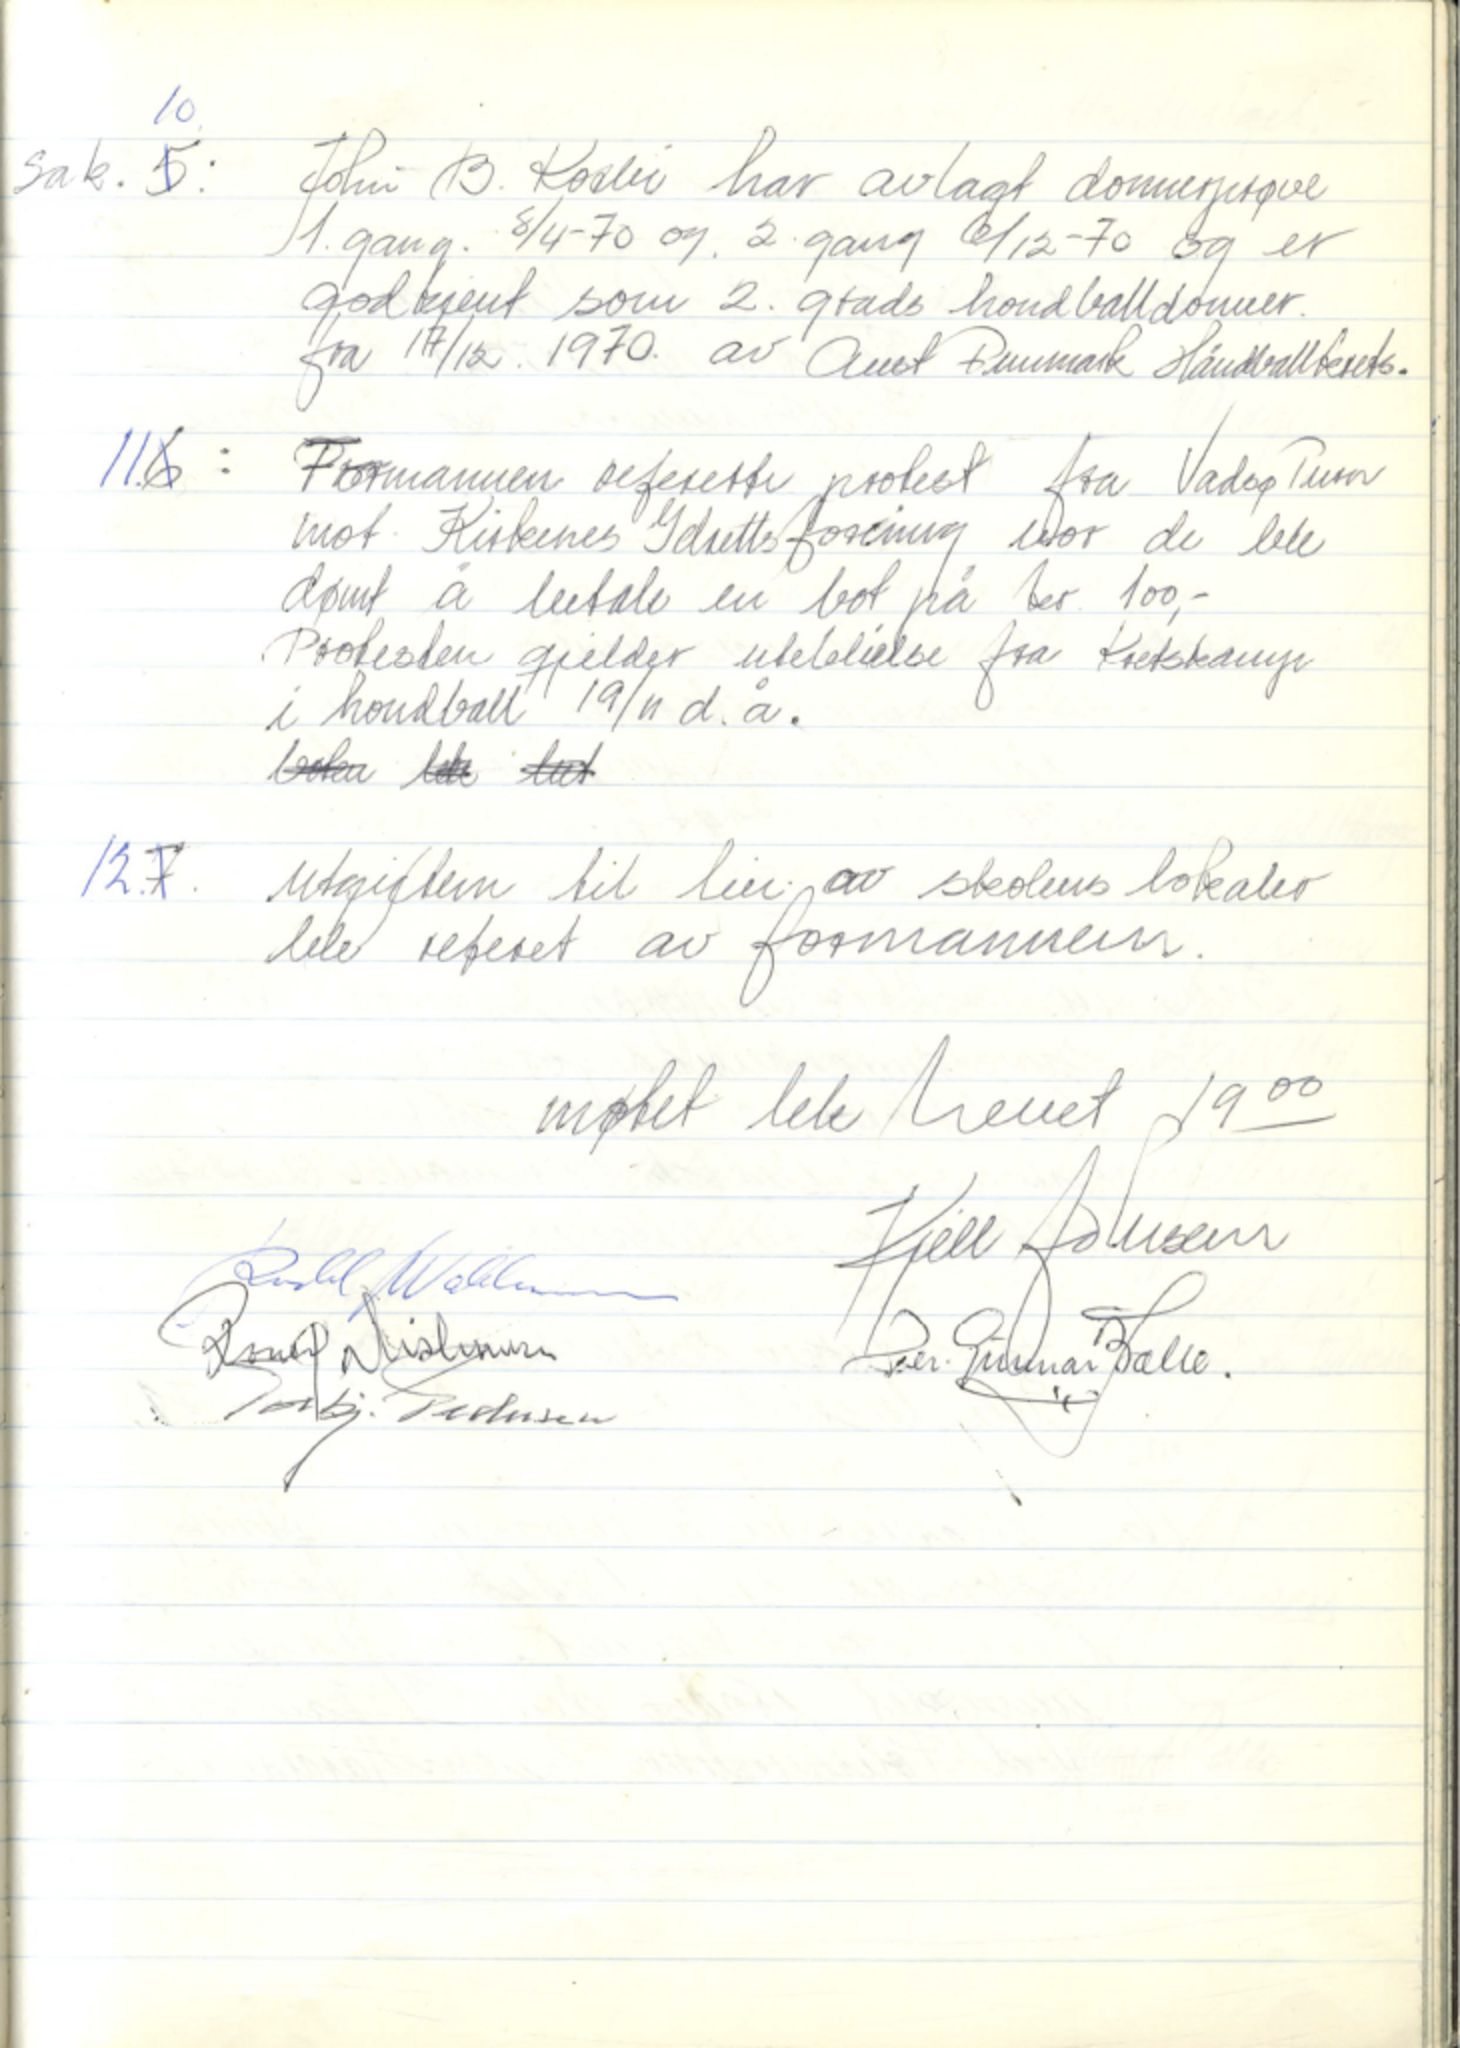 10.
Sak. 5: John B. Koski har avlagt dommerprøve
1. gang. 8/4-70 og. 2. gang 6/12-70 og er
godkjent som 2. grads hondballdommer.
fra 17/12. 1970. av Aust Finnmark Håndballkrets.
11.6: Formannen refererte protest fra Vadsø Turn
mot. Kirkenes Idrettsforening hvor de ble
dømt å betale en bot på kr. 100,-
Protesten gjelder uteblielse fra Kretskamp
i hondball 19/11 d.å.
boten ble bet
12.7. Utgiftern til leie av skolens lokaler
ble referet av formannen.
møtet ble hevet 19 00
Kjell Johnsen
Per. Gunnar Balle.
Torbj.